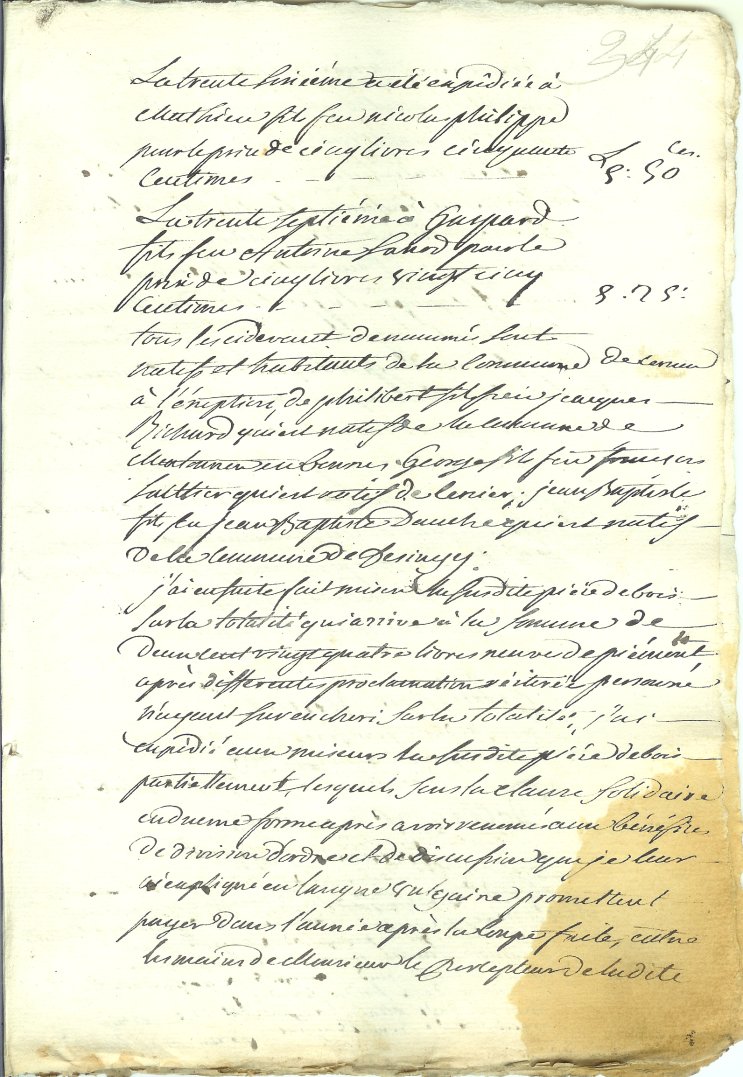 244
La trente sixiéme a été expédiée à
Mathieu fils feu nicolas philippe
pour le prix de cinq livres cinquante L Ces.
Centimes 5: 50
La trente septiéme à Gaspard
fils feu Antoine pour le
prix de cinq livres vingt cinq
Centimes 5. 25:
tous les cidevant denommés sont
natifs et habitants de la Commune de
à l'éxeption de philibert fils feu jacques
Richard qui est natif de la Commune de
George fils feu françois
qui est natif de ; jean Baptiste
fils feu jean Baptiste qui est natif
de la Commune de Desingy;
j'ai ensuite fait miser la susdite piéce de bois
sur la totalité qui arrive à la somme de
deux cent vingt quatre livres neuve de piémont
après differentes proclamation réiterée personne
n'ayant surencheri sur la totalité, j'ai
expédié aux miseurs la susdite piéce de bois
partiellement, lesquels sous la clause solidaire
en due forme après avoir renoncés aux bénéfices
de division d'ordre et de discussion que je leur
ai expliqué en langue vulgaire promettent
payer dans l'année après la coupe faite, entre
les mains de Monsieur le Percepteur de ladite